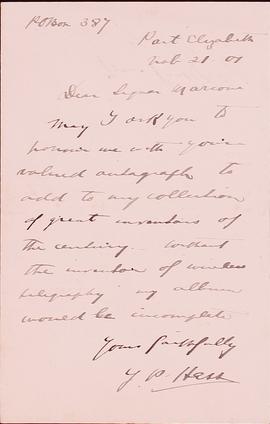 PO Box 387
Port Elizabeth
Feb 21. 01
Dear Signor Marconi
May I ask you to
honour me with your
valued autograph to
add to my collection
of great inventors of
the century. Without
the inventor of wireless
telegraphy my album
would be incomplete
Yours faithfully
J. P. Hess